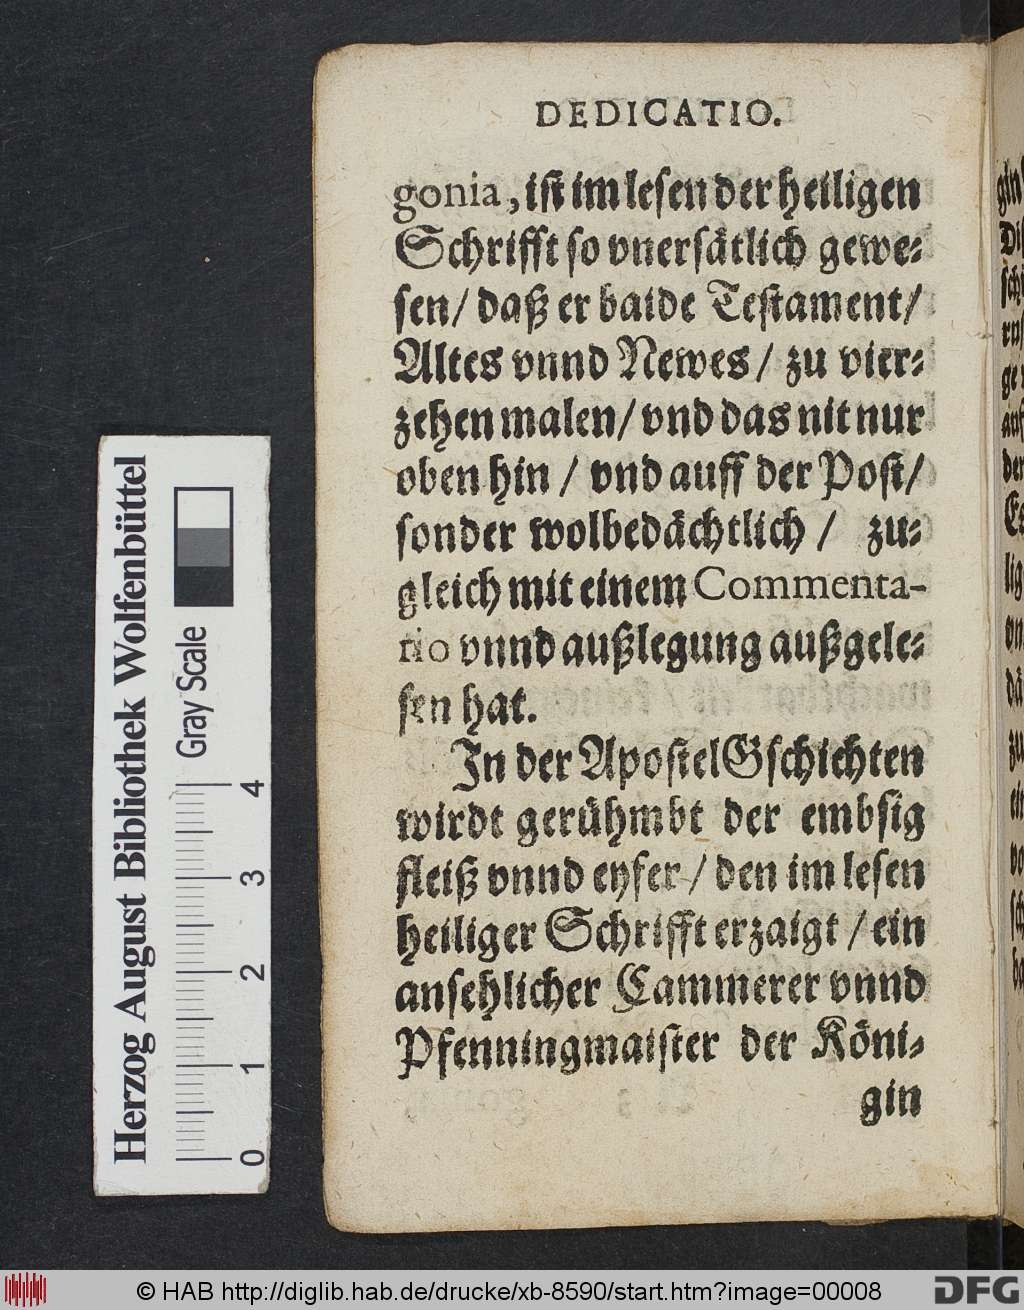 DEDICATIO.
gonia, ist im lesen der heiligen
Schrifft so vnersätlich gewe-
sen/ daß er baide Testament/
Altes vnnd Newes/ zu vier-
zehen malen/ vnd das nit nur
oben hin / vnd auff der Post/
sonder wolbedächtlich / zu-
gleich mit einem Commenta-
rio vnnd außlegung außgele-
sen hat.
In der Apostel Gschichten
wirdt gerühmbt der embsig
fleiß vnnd eyfer / den im lesen
heiliger Schrifft erzaigt / ein
ansehlicher Cammerer vnnd
Pfenningmaister der Köni-
gin
Herzog August Bibliothek Wolfenbüttel
Gray Scale
0 1 2 3 4
© HAB http://diglib.hab.de/drucke/xb-8590/start.htm?image=00008
DFG